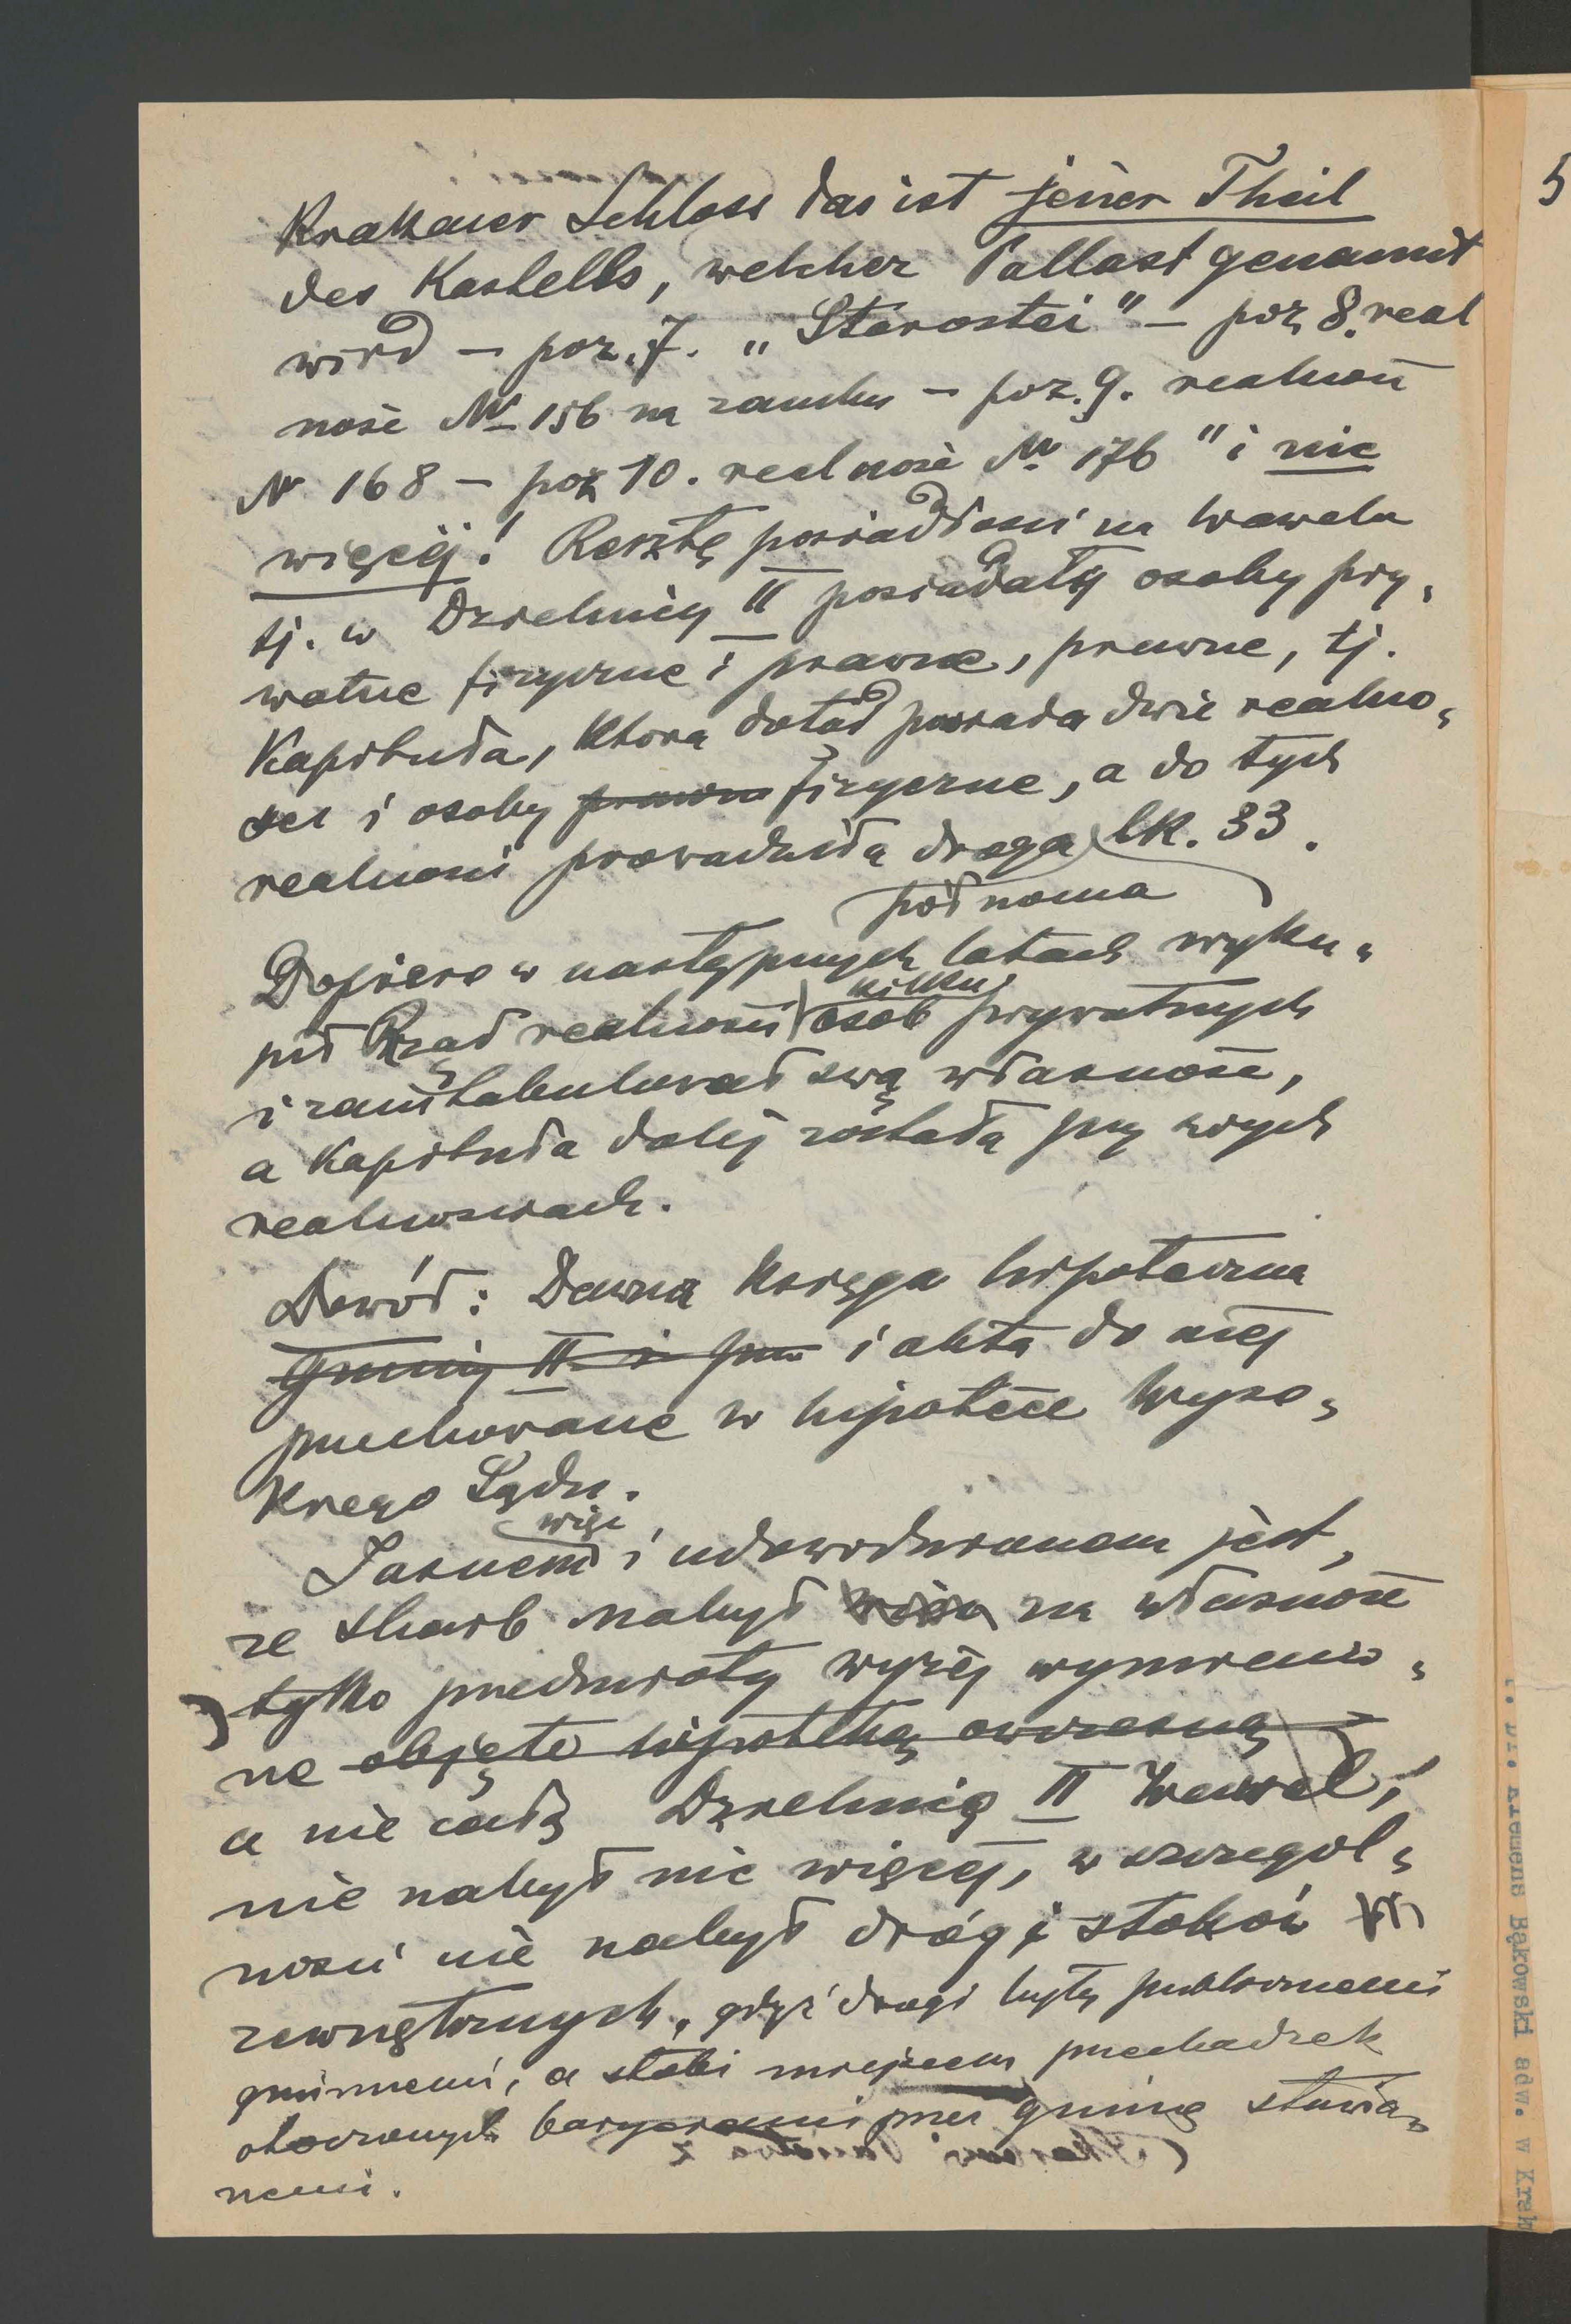 Krakauer Schloss das ist jener Theil
des Kastells, welcher Pallast genannt
wird – poz. 7. „Starostei" – poz 8. real
ność Nr 156 na zamku – poz. 9. realność
Nr 168 – poz 10. realność Nr 176" i nic
więcej! Resztę posiadłości na Wawelu
tj. w Dzielnicy II posiadały osoby pry„
watne fizyczne i prawne, prawne, tj.
Kapituła, która dotąd posiada dwie realno„
ści i osoby prawne fizyczne, a do tych
realności prowadziła droga lk. 33.
północna
Dopiero w następnych latach wyku„
pił Rząd realności kilku osób prywatnych
i zaintabulował swą własność,
a Kapituła dalej została przy swych
realnościach.
Dowód: Dawna Księga hipoteczna
Gminy II i i akta do niej
przechowane w hipotece Wyso„
kiego Sądu.
Jasnem więc i udowodnionem jest,
że skarb nabył na własność
tylko przedmioty wyżej wymienio„
ne objęte hipoteką ówczesną
a nie całą Dzielnicę II Wawel,
nie nabył nic więcej, w szczegól„
ności nie nabył dróg i stoków
zewnętrznych, gdyż drogi były publicznemi
gminnemi, a stoki miejscem przechadzek
otoczonych baryerami przez gminę stawia„
nemi.
5
Dr. Klemens Bąkowski adw. w Krak